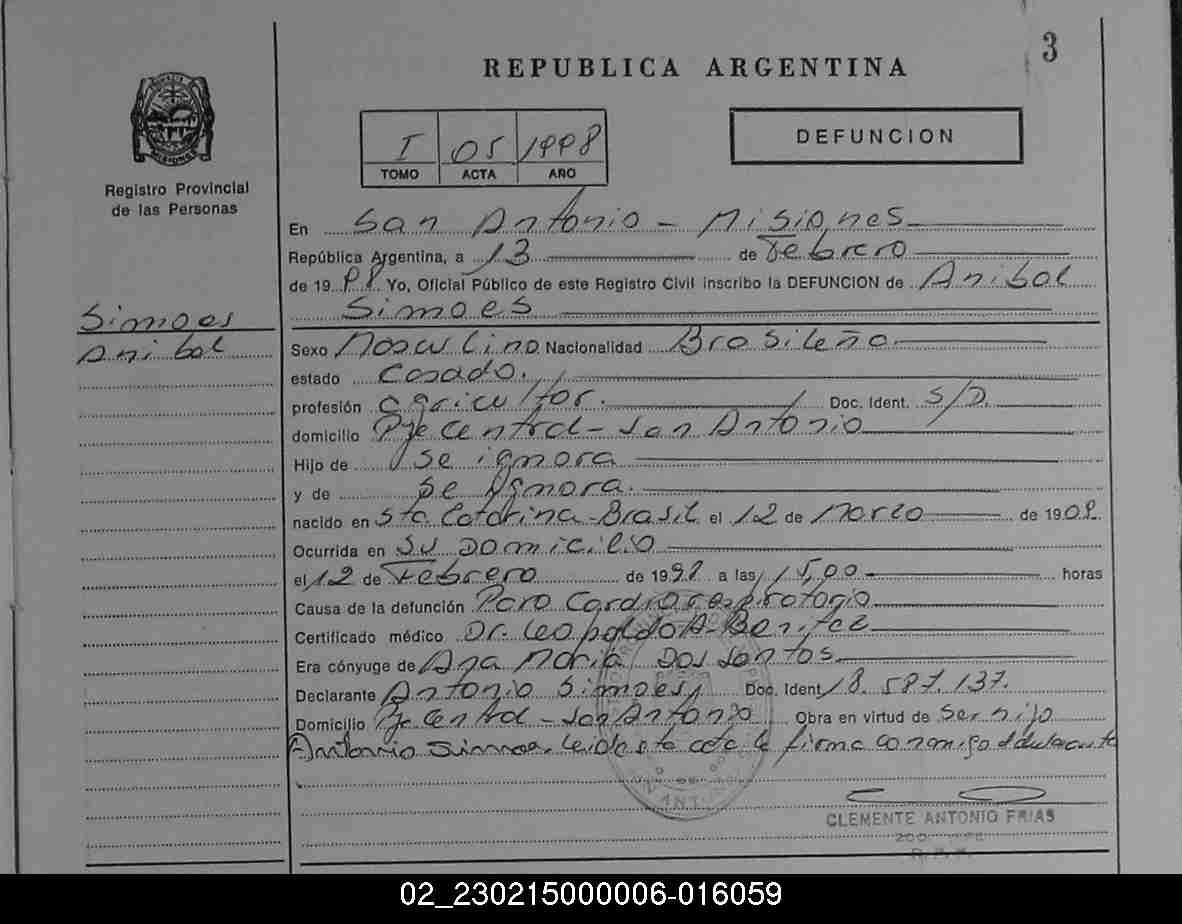 3
REPUBLICA ARGENTINA
I 05 1998
TOMO ACTA AÑO
DEFUNCION
MISIONES
Registro Provincial
de las Personas
En San Antonio - Misiones
República Argentina, a 13 de Febrero
de 1998 Yo, Oficial Público de este Registro Civil inscribo la DEFUNCION de Anibal
Simoes
Simoes
Anibal
Sexo Masculino Nacionalidad Brasileña
estado Casado.
profesión agricultor. Doc. Ident. S/D.
domicilio Pje Central - San Antonio
Hijo de se ignora
y de se ignora.
nacido en Sta Catarina - Brasil el 12 de Marzo de 1908
Ocurrida en su Domicilio
el 12 de Febrero de 1998 a las 15,00 horas
Causa de la defunción Paro Cardiorespiratorio
Certificado médico Dr. Leopoldo A. Benitez
Era cónyuge de Ana Maria Dos Santos
Declarante Antonio Simoes, Doc. Ident 18.587.137.
Domicilio Pje Central - San Antonio Obra en virtud de ser hijo
Antonio Simoes. Leida sta acta la firma conmigo el declarante
CLEMENTE ANTONIO FRIAS
02_230215000006-016059